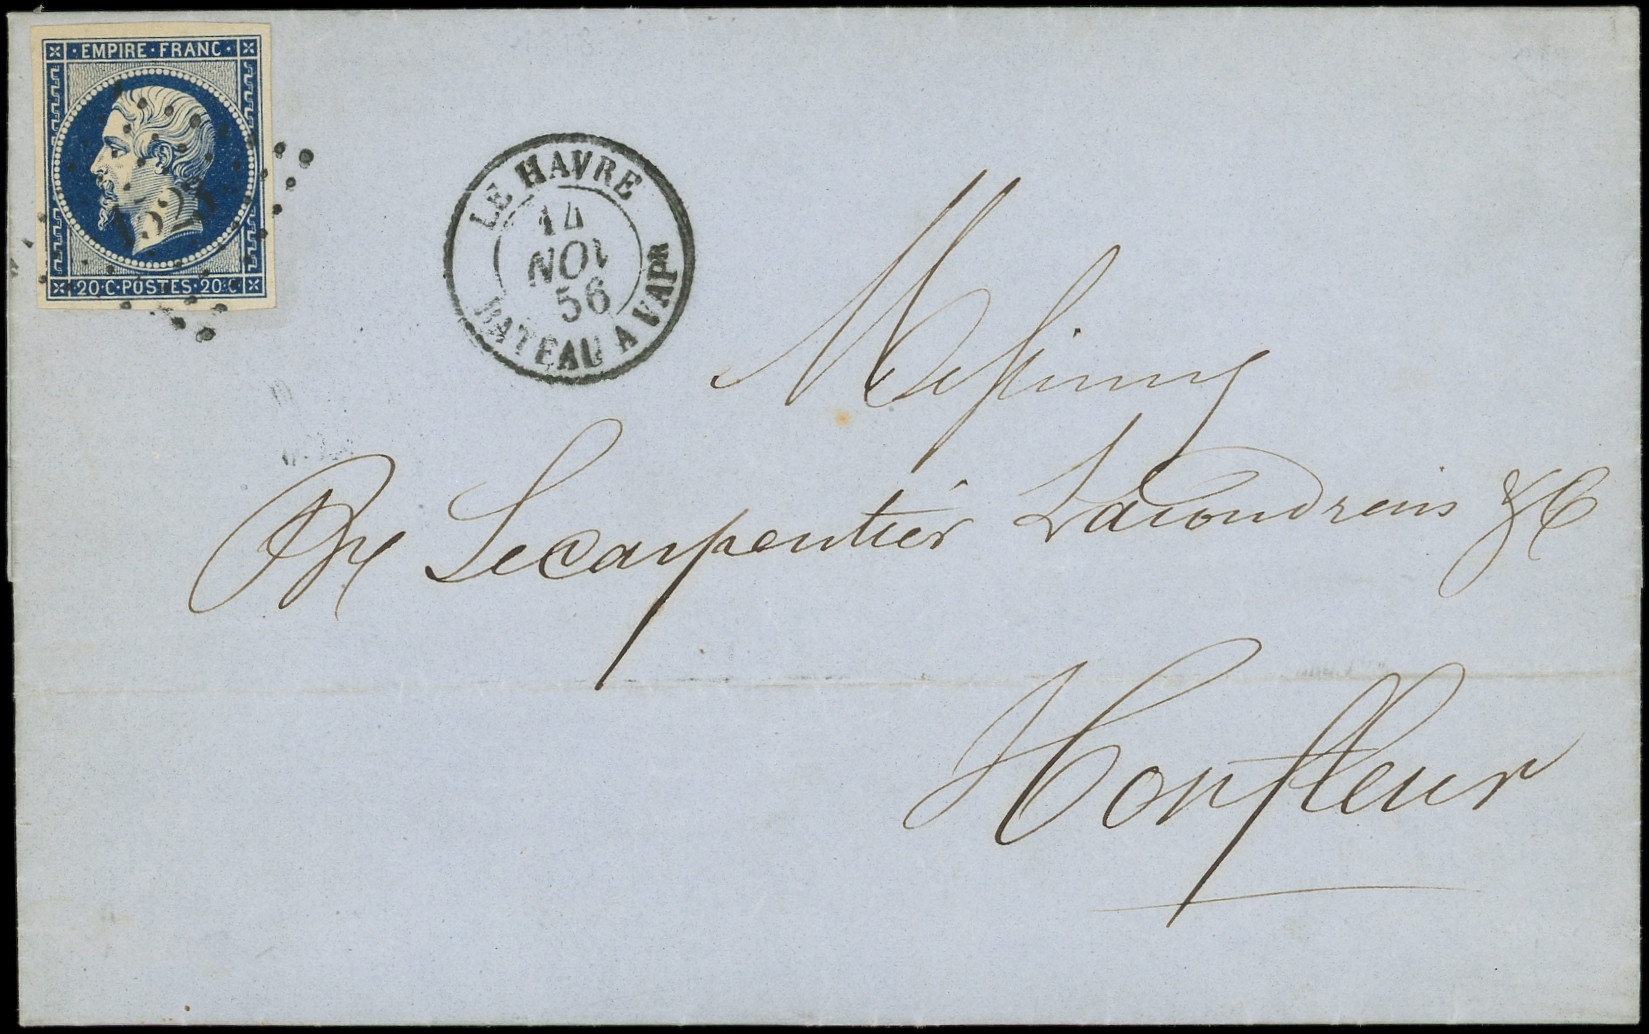 EMPIRE · FRANC ·
1323
20 · C · POSTES · 20 · C
LE HAVRE
14
NOV
56
BATEAU A VAPR
Messieurs
Lecarpentier Lacoudrais & C
Honfleur